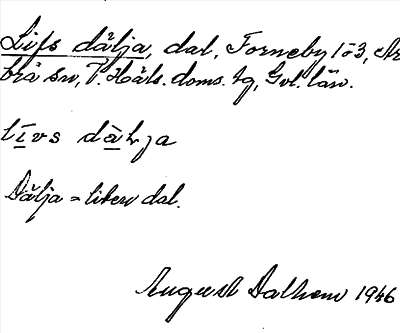 Lifs dälja, dal, Forneby 1ö3, Ar
brå sn, V. Häls. doms. tg, Gvl. län.
līvs dàlja
Dälja = liten dal.
August Dalhem 1946